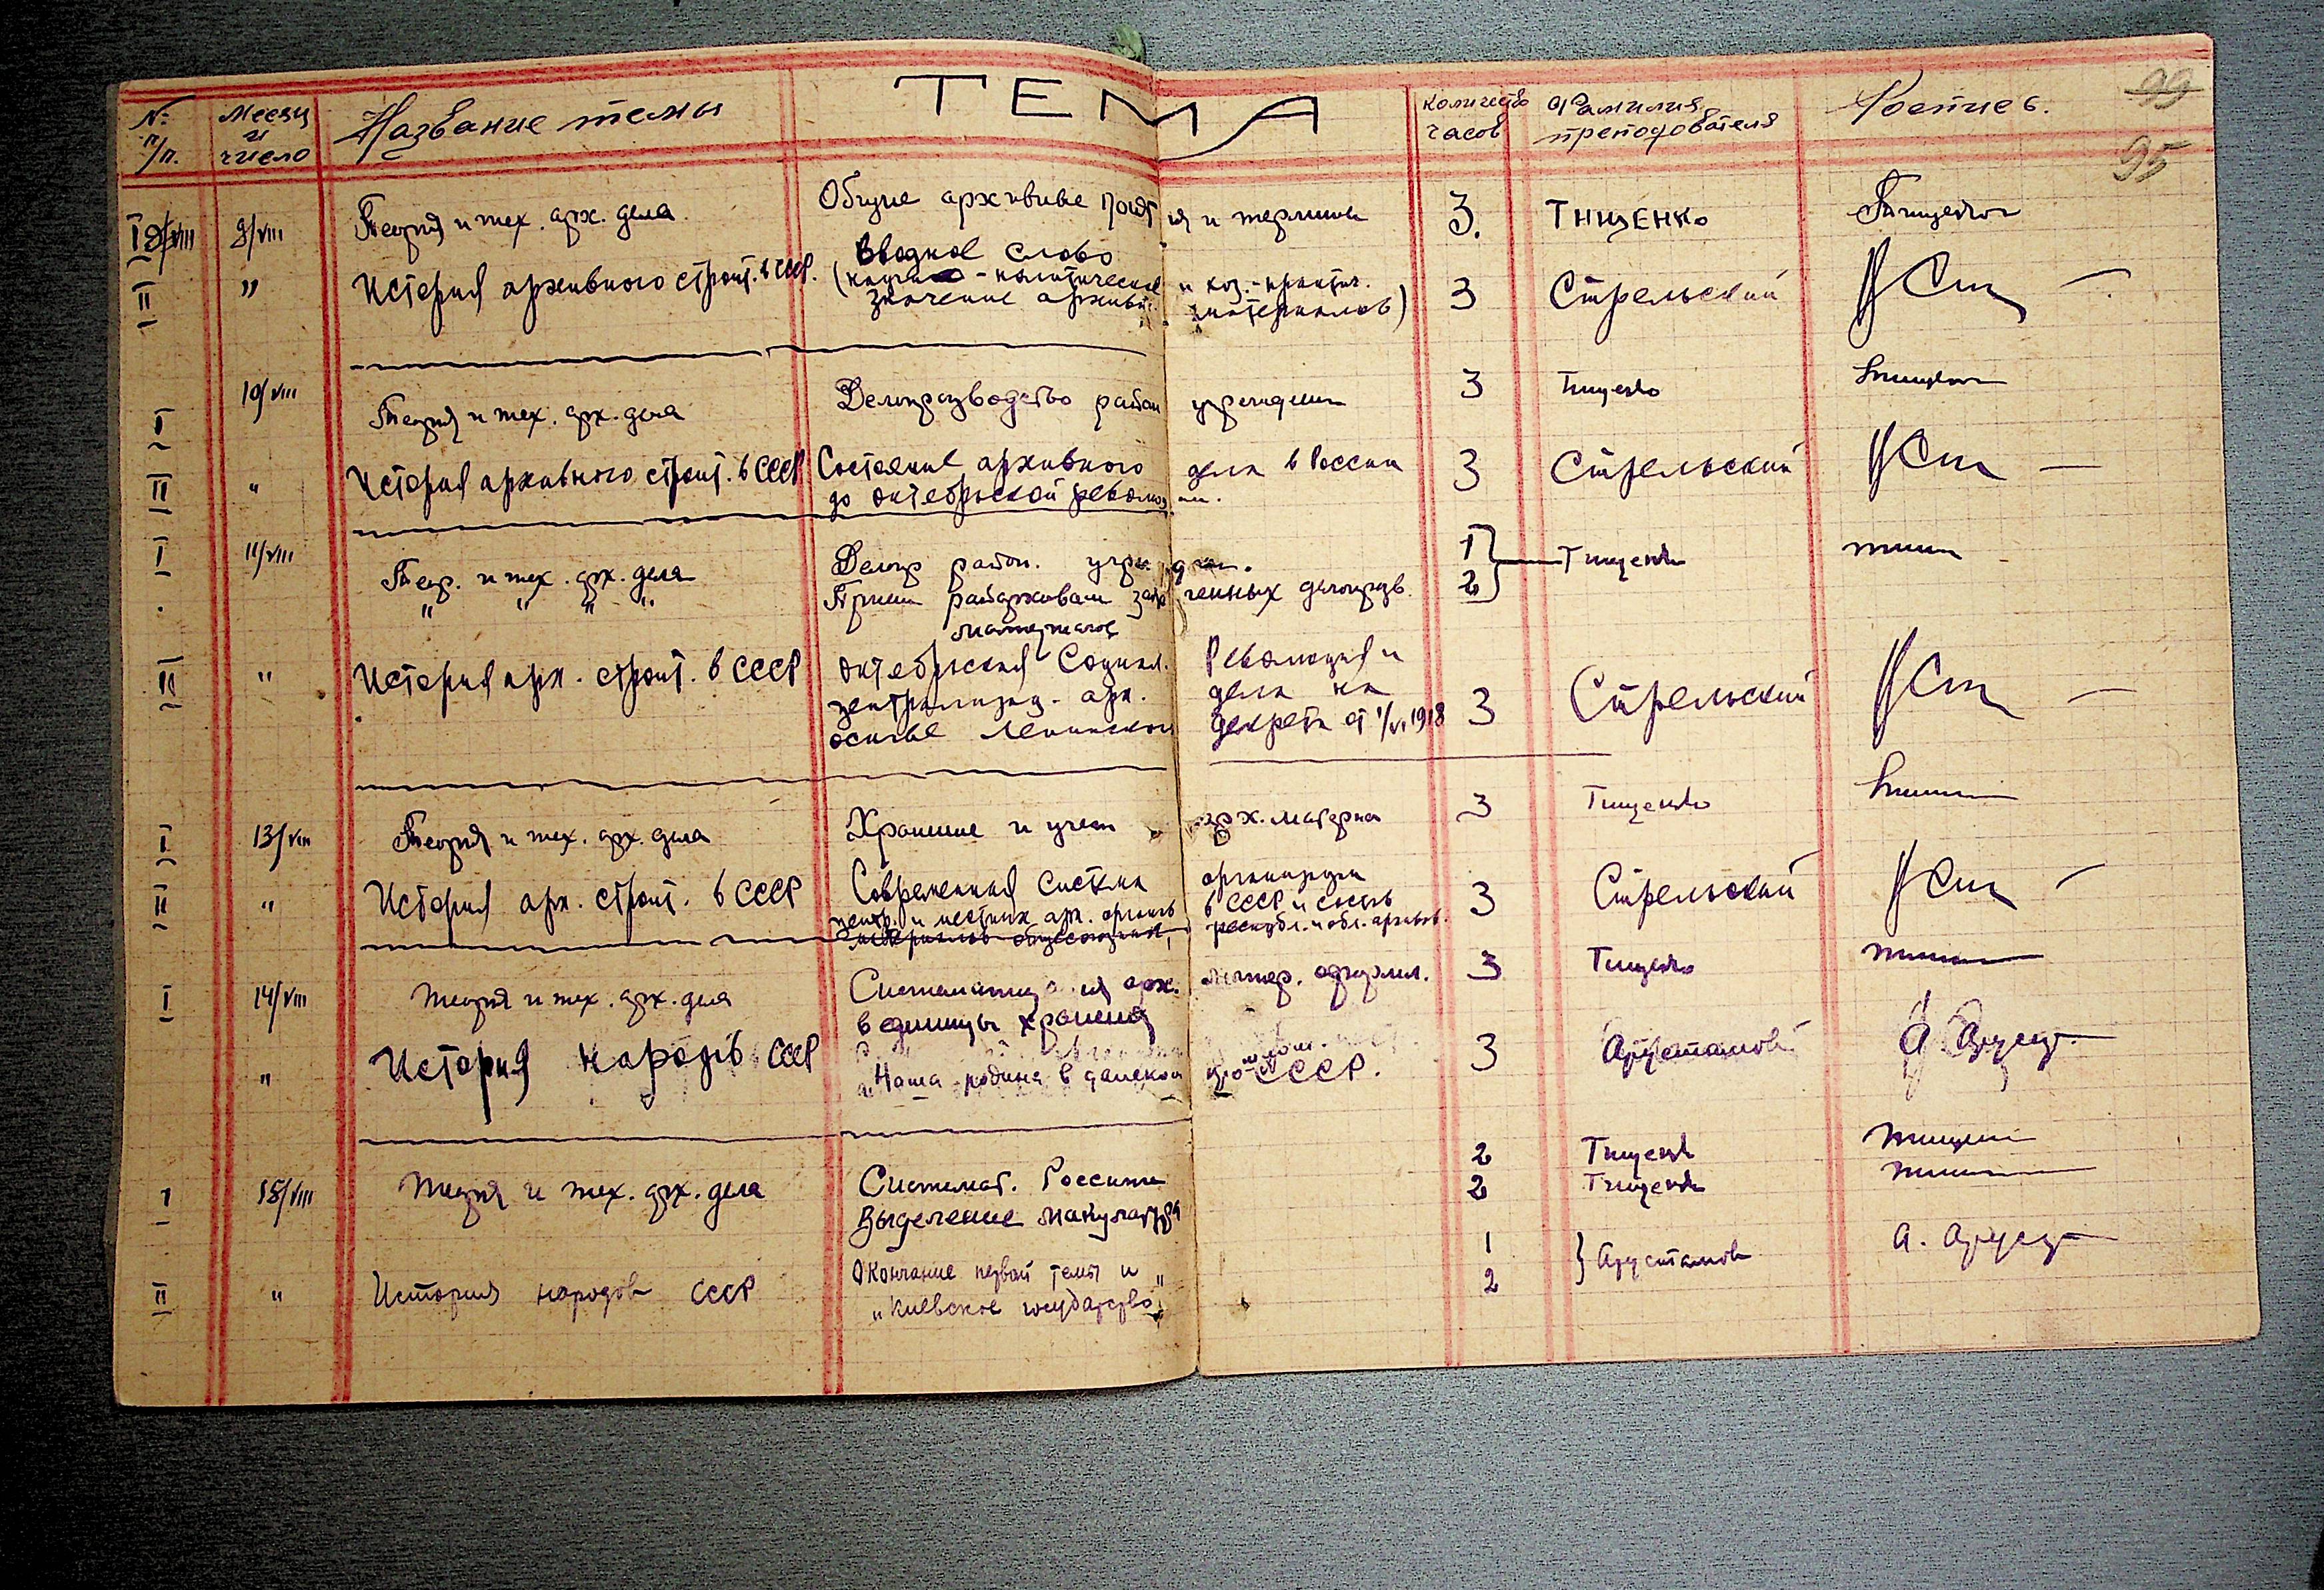 № п/п. Месяц и число Название темы ТЕМА Количество часов Фамилия преподователя Роспись. 99
95
I 8/VIII Теория и тех. арх. дела Общие архивные понятия и термины 3. ТИЩЕНКО Тищенко
II " История архивного строит. в СССР. Вводное слово
(научно-политическое и хоз.-практич. 3 Стрельский
значение архивн. материалов)
I 10/VIII Теория и тех. арх. дела Делопроизводство район учрежден 3 Тищенко
II " История архивного строит. в СССР Состояние архивного дела в России 3 Стрельский
до октябрьской революции.
I 11/VIII Теор. и тех. арх. дела Делопр район. учрежден. 1 Тищенко
" " " " Прием райархивам законченных делопрозв. 2
материалов
II " История арх. строит. в СССР Октябрьская Социал. Революция и
централизац. арх. дела на 3 Стрельский
основе Ленинского декрета от 1/VI 1918
I 13/VIII Теория и тех. арх. дела Хранение и учет арх. материа 3 Тищенко
II " История арх. строит. в СССР Современная система организации 3 Стрельский
центр. и местных арх. органов в СССР и состав
материалов общесоюзных, республ. и обл. архивов.
I 14/VIII Теория и тех. арх. дела Систематизация арх. матер. оформл. 3 Тищенко
в единицы хранения
" История народов СССР "Наша родина в далеком прошлом" СССР. 3 Арустамов А. Арустам
I 15/VIII Теория и тех. арх. дела Системат. Россыпи 2 Тищенко
Выделение макулатуры 2 Тищенко
II " История народов СССР Окончание первой темы и 1 Арустамов А. Арустам
"Киевское государство" 2